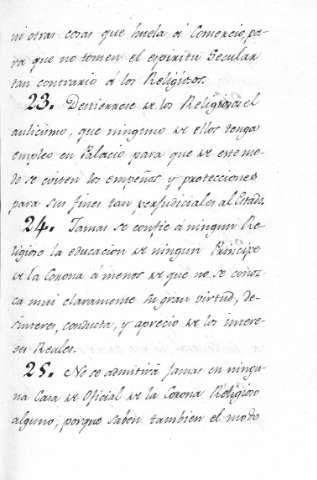 ni otras cosas que huela á Comercio, pa-
ra que no tomen el espiritu Secular
tan contrario á los Religiosos.
23. Destierrese de los Religiosos el
aulicismo, que ninguno de ellos tenga
empleo en Palacio para que de este mo-
do se eviten los empeños y protecciones
para sus fines tan perjudiciales al Estado.
24. Jamas se confie á ningun Re-
ligioso la educacion de ningun Principe
de la Corona á menos de que no se conoz-
ca mui claramente su gran virtud, de-
sinteres, conducta, y aprecio de los intere-
ses Reales.
25. No se admitirá Jamas en ningu-
na Casa de Oficial de la Corona Religioso
alguno, porque saben tambien el modo